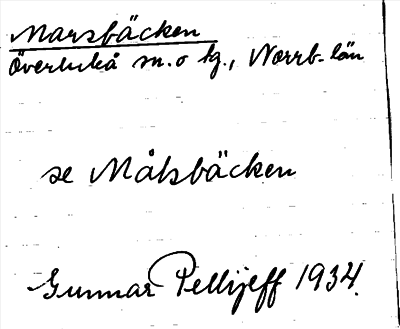 Marsbäcken
Överluleå sn. o tg., Norrb. län
se Målsbäcken
Gunnar Pellijeff 1934.